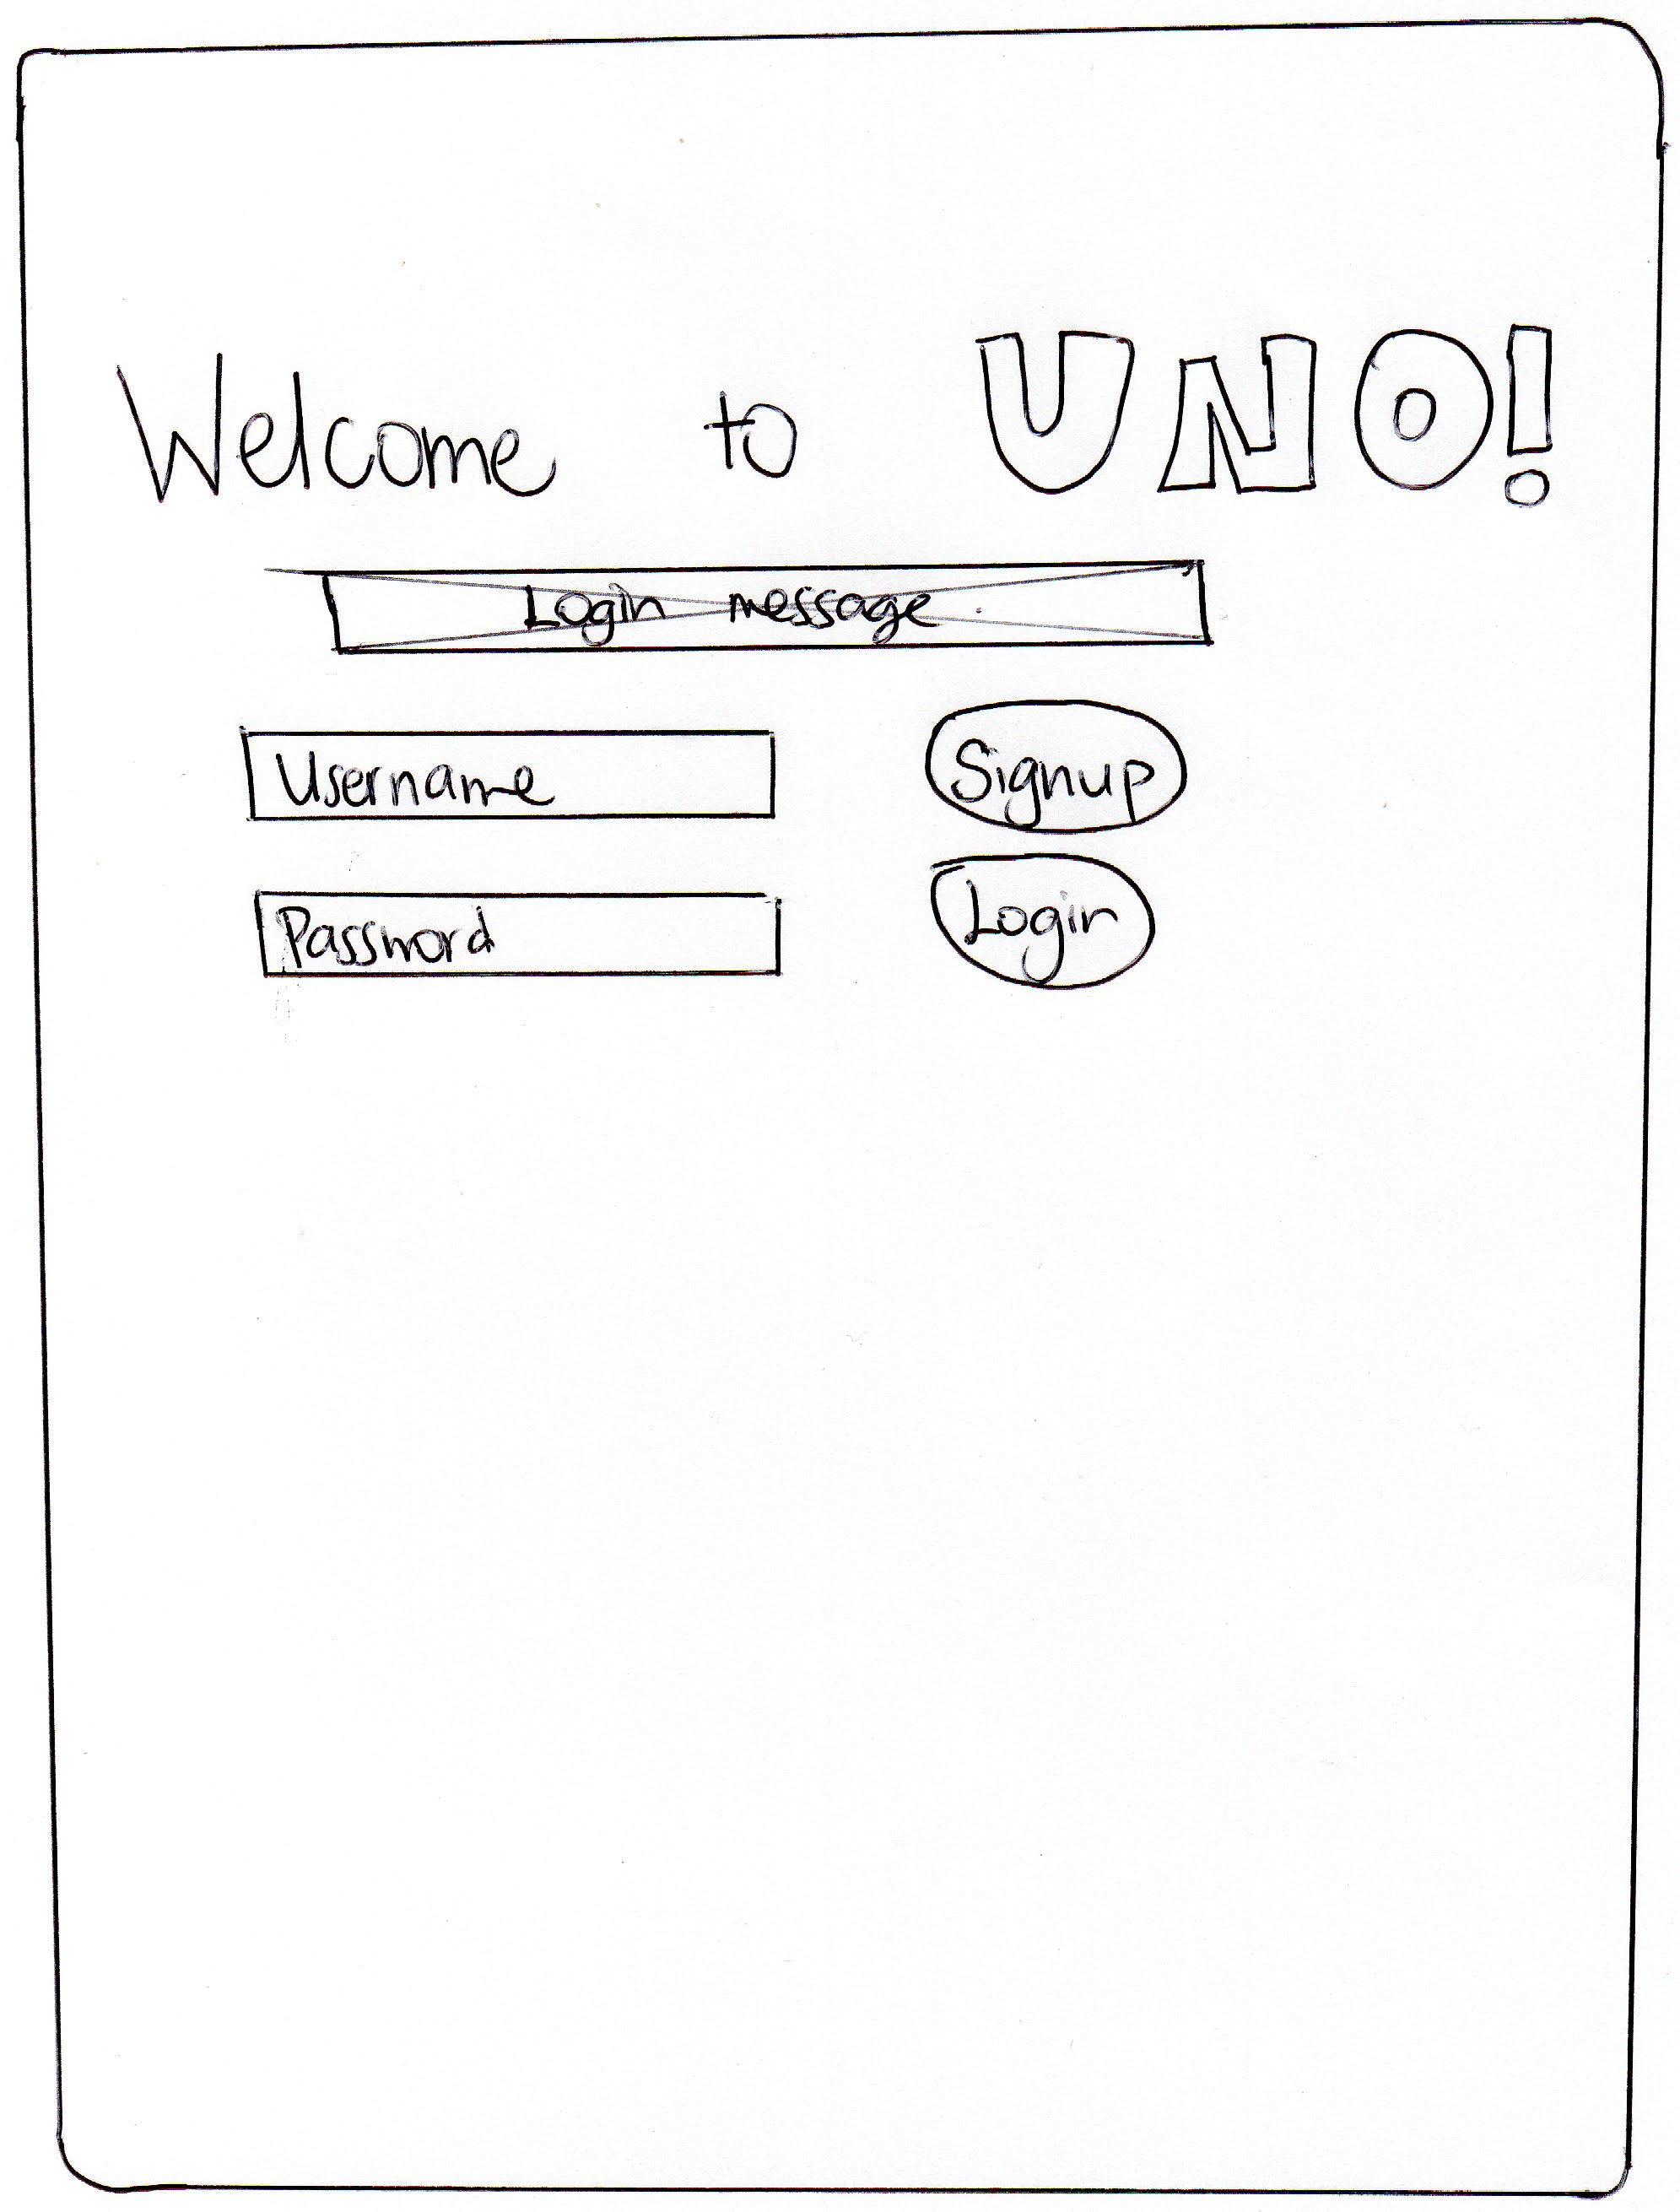 Welcome to UNO!
Login message
Username
Signup
Password
Login